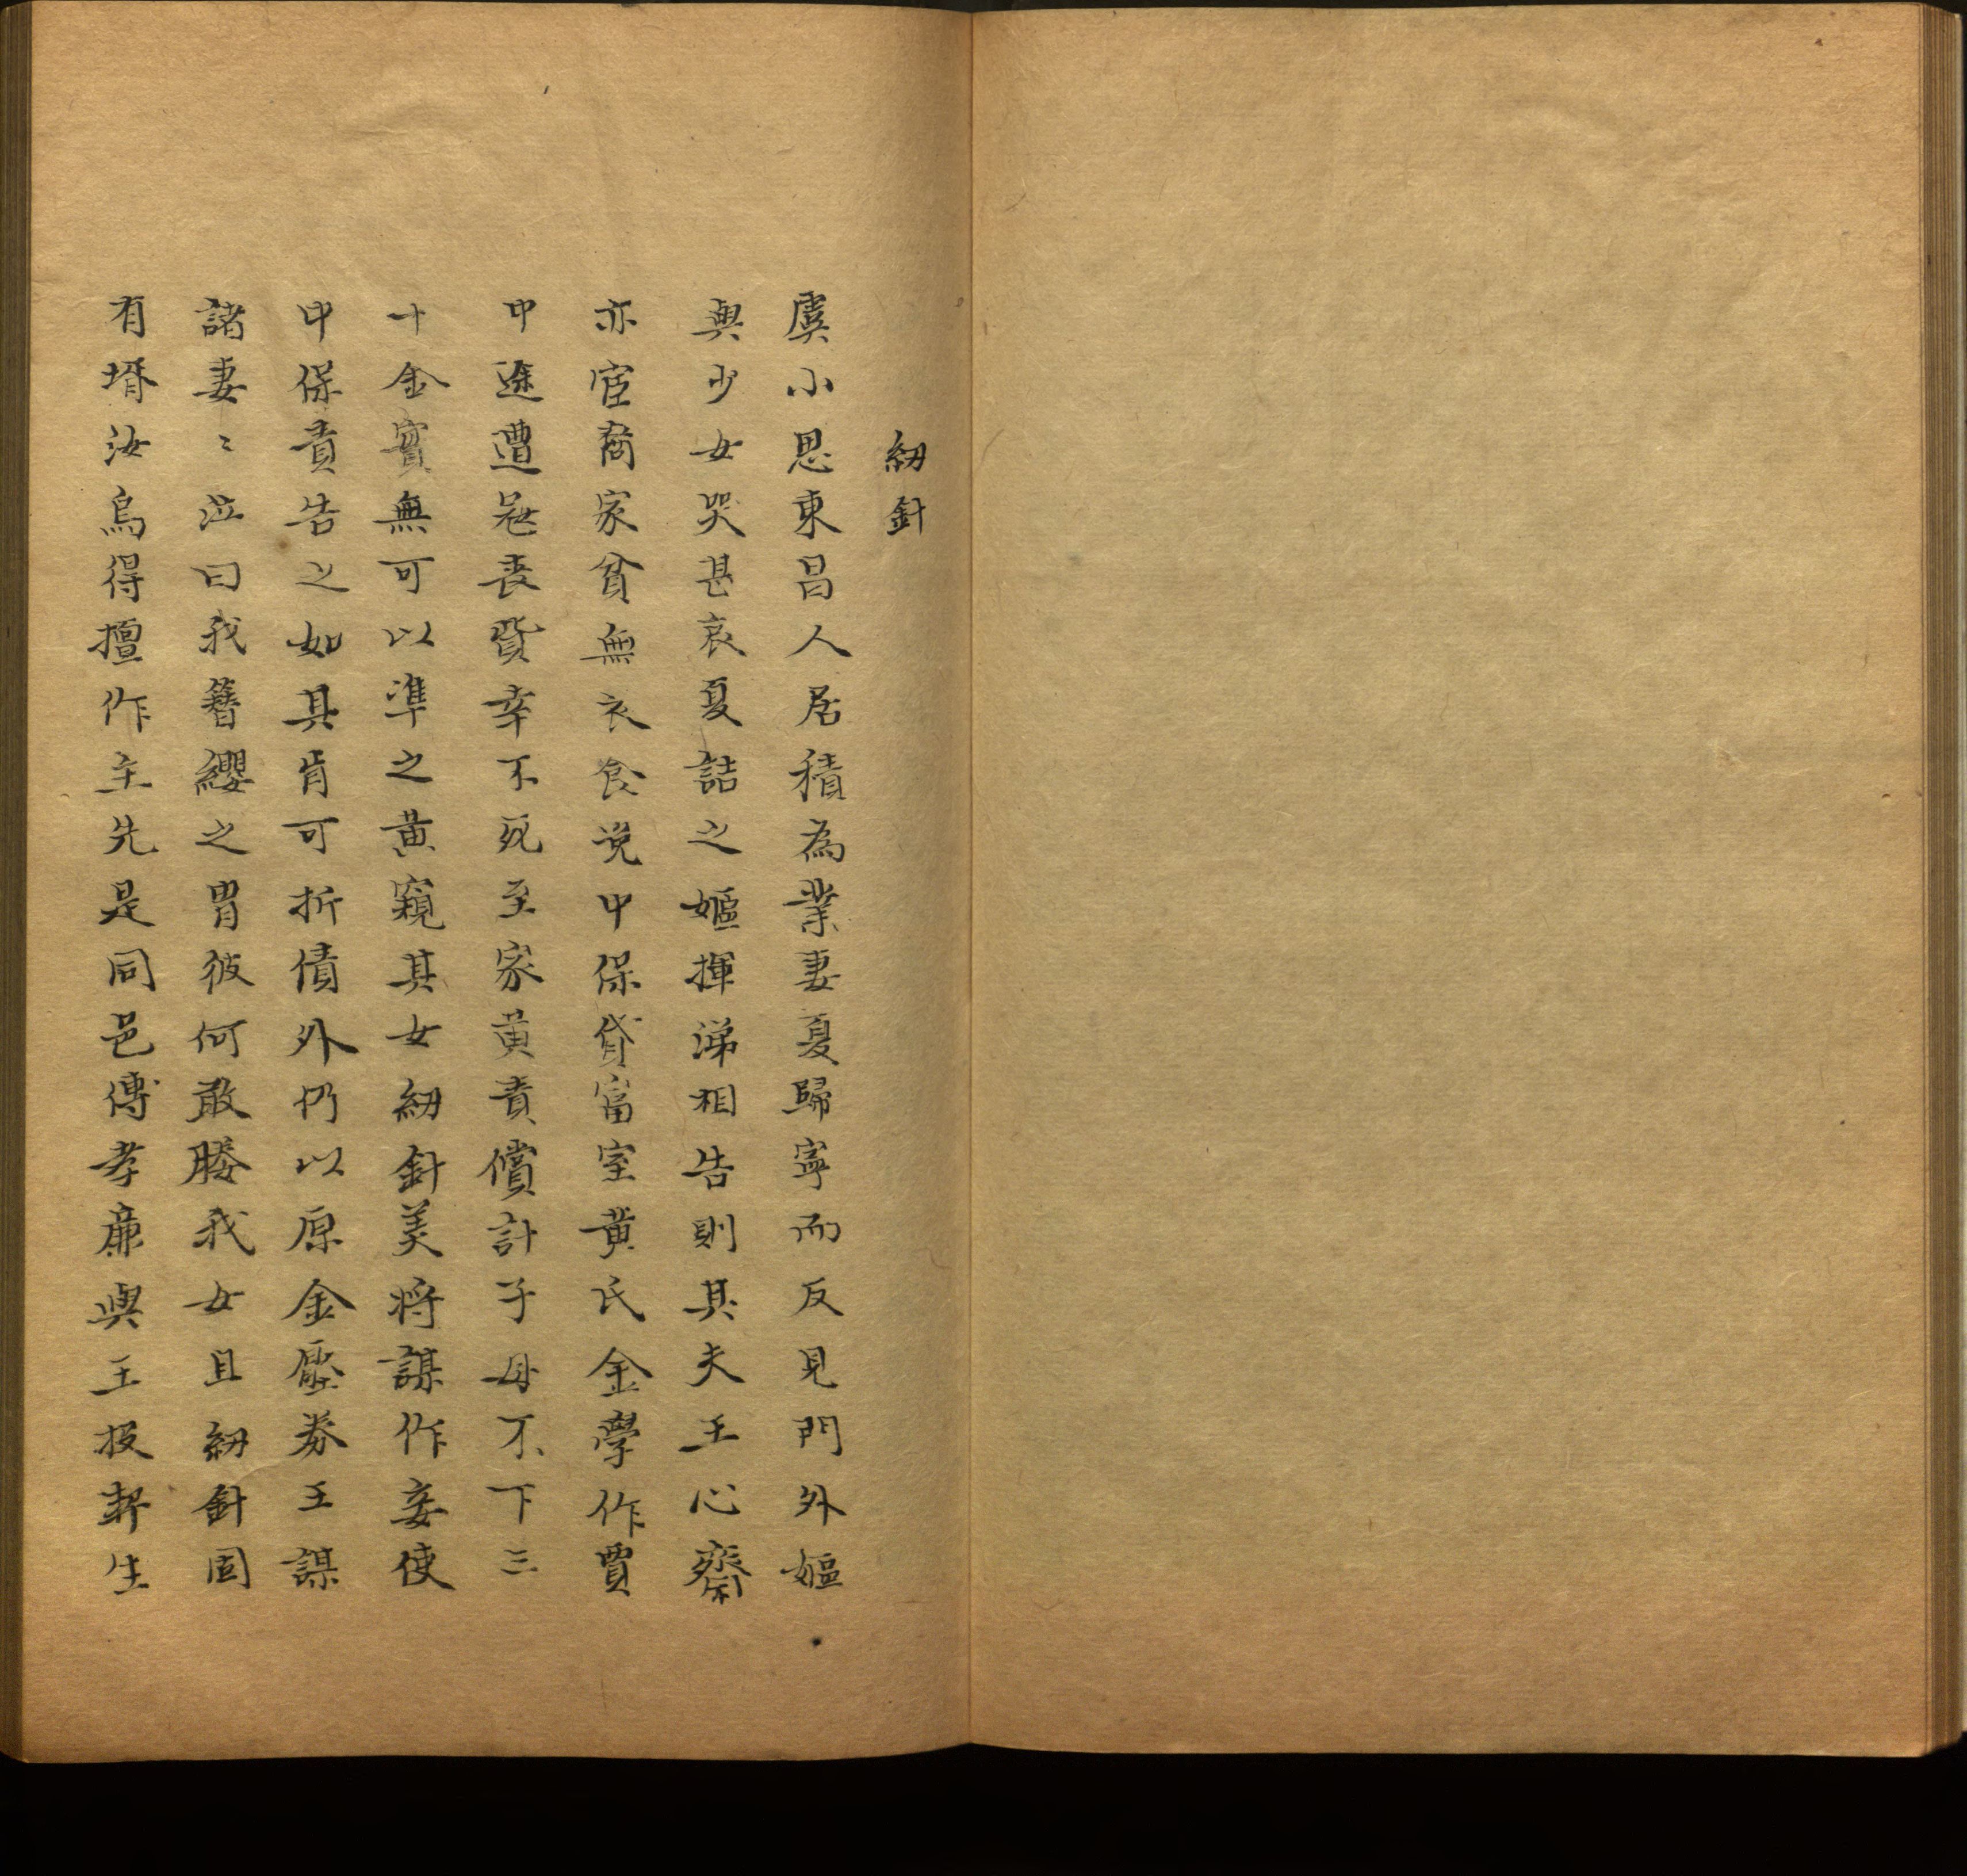 紉針
虞小思東昌人居積為業妻夏歸寧而反見門外嫗
與少女哭甚哀夏詰之嫗揮涕相告則其夫王心齋
亦宦裔家貧無衣食說中保貸富室黃氏金學作賈
中途遭寇喪貲幸不死至家黃責償計子母不下三
十金實無可以準之黃窺其女紉針美將謀作妾使
中保責告之如其肯可折債外仍以原金壓券王謀
諸妻〻泣曰我簪纓之胄彼何敢媵我女且紉針固
有壻汝烏得擅作主先是同邑傅孝廉與王投契生